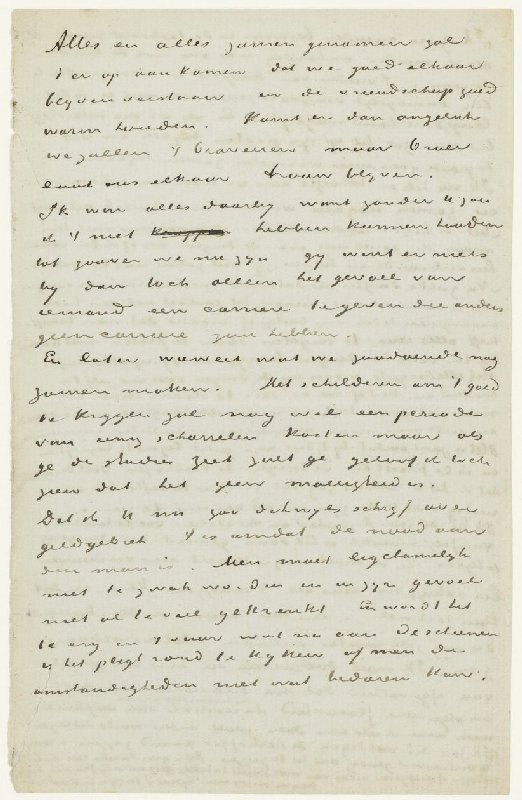 Alles en alles zamen genomen zal
't er op aan komen dat we goed elkaar
blyven verstaan en de vriendschap goed
warm houden. Komt er dan ongeluk
we zullen 't braveren maar broer
laat ons elkaar trouw blyven.
Ik win alles daarby want zonder U zou
ik 't niet hebben kunnen houden
tot zoover we nu zyn gy wint er niets
by dan toch alleen het gevoel van
iemand een carriere te geven die anders
geen carriere zou hebben.
En later wie weet wat we zoodoende nog
zamen maken. Het schilderen om 't goed
te krygen zal nog wel een periode
van eenig scharrelen kosten maar als
ge de studies ziet zult ge geloof ik toch
zien dat het geen malligheid is.
Dat ik U nu zoo dikwyls schryf over
geldgebrek 't is omdat de nood aan
den man is. Men moet ligchamelyk
niet te zwak worden en in zyn gevoel
niet al te veel gekrenkt En wordt het
te erg en 't vuur wat na aan de schenen
is het pligt rond te kyken of men de
omstandigheden niet wat bedaren kan.